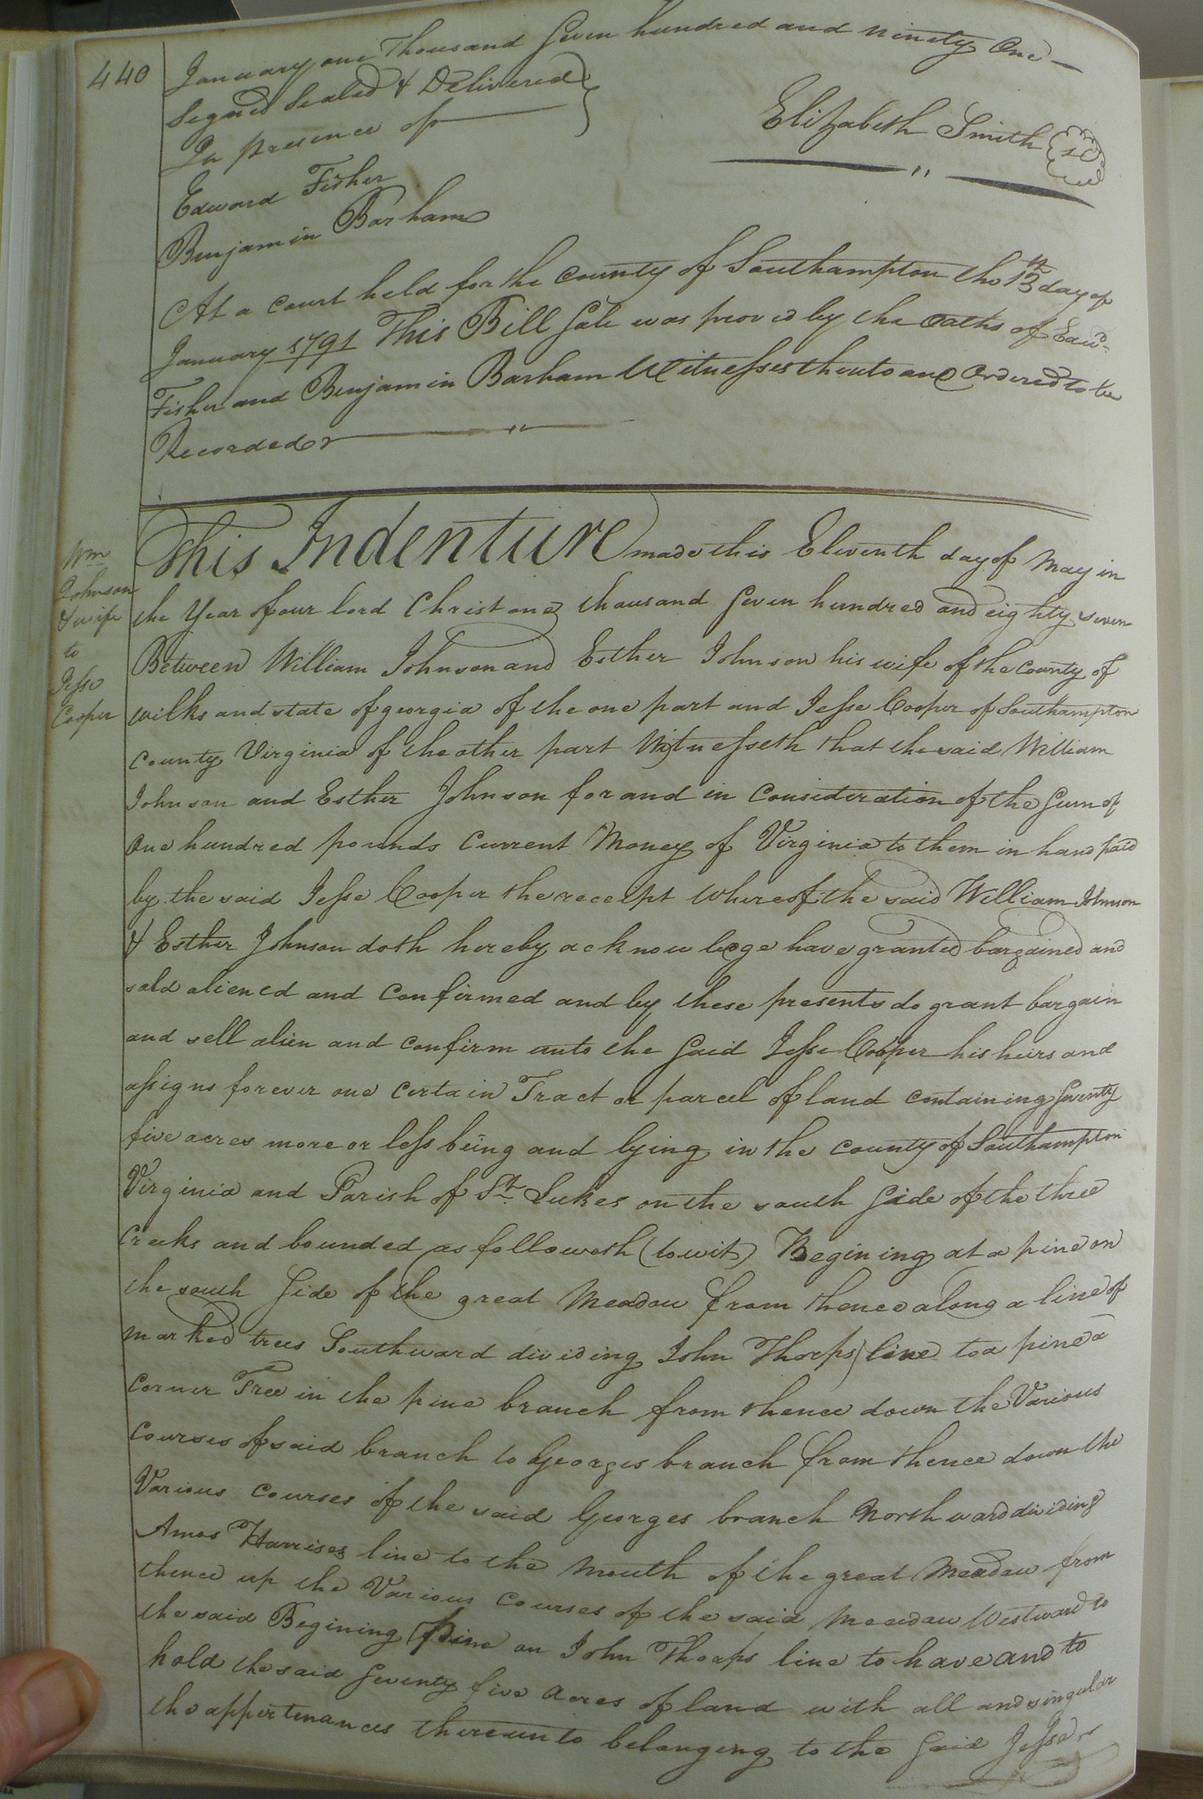 440
January one Thousand Seven hundred and Ninety One
Signed Sealed & Delivered
In presence of
Elizabeth Smith
Edward Fisher
Benjamin Barham
At a Court held for the County of Southampton the 13th day of
January 1791 This Bill Sale was proved by the Oaths of Edwd.
Fisher and Benjamin Barham Witnesses thereto and Ordered to be
Recorded
Wm
Johnson
& wife
to
Jesse
Cooper
This Indenture made this Eleventh day of May in
the Year of our lord Christ one thousand Seven hundred and eighty seven
Between William Johnson and Esther Johnson his wife of the County of
wilks and state of georgia of the one part and Jesse Cooper of Southampton
County Virginia of the other part Witnesseth that the said William
Johnson and Esther Johnson for and in Consideration of the Sum of
One hundred pounds Current Money of Virginia to them in hand paid
by the said Jesse Cooper the receipt Whereof the said William Johnson
& Esther Johnson doth hereby acknowlege have granted bargained and
sold aliened and Confirmed and by these presents do grant bargain
and sell alien and Confirm unto the Said Jesse Cooper his heirs and
assigns forever one Certain Tract or parcel of land Containing Seventy
five acres more or less being and lying in the County of Southampton
Virginia and Parish of St. Lukes on the south Side of the three
Creeks and bounded as followeth (towit) Begining at a pine on
the south Side of the great Meadow from thence along a line of
marked trees Southward dividing John Thorps line to a pine a
Corner Tree in the pine branch from thence down the Various
Courses of said branch to Georges branch from thence down the
Various Courses of the said Georges branch Northward dividing
Amos Harrises line to the Mouth of the great Meadow from
thence up the Various Courses of the said Meadow Westward to
the said Begining Pine on John Thorps line to have and to
hold the said Seventy five Acres of land with all and singular
the appertenances thereunto belonging to the Said Jesse